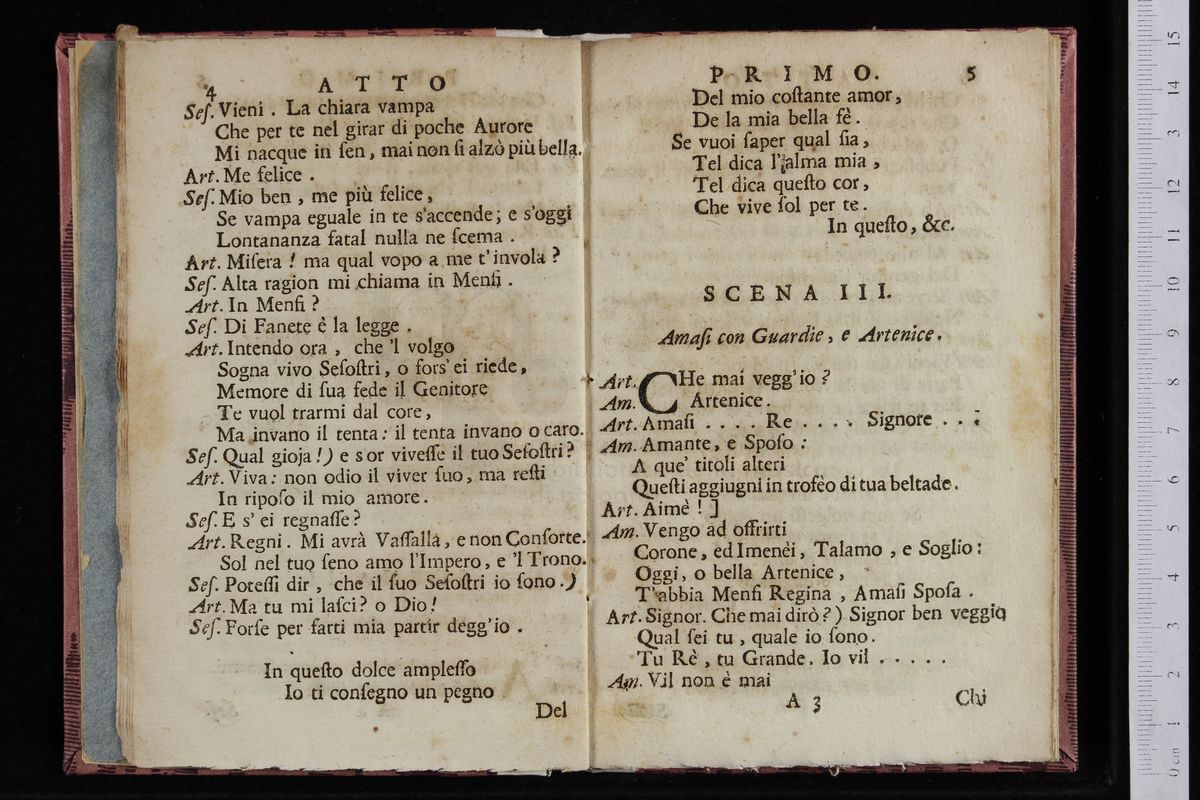 4
ATTO
Seſ. Vieni . La chiara vampa
Che per te nel girar di poche Aurore
Mi nacque in ſen , mai non ſi alzò più bella.
Art. Me felice .
Seſ. Mio ben , me più felice ,
Se vampa eguale in te s'accende; e s'oggi
Lontananza fatal nulla ne ſcema .
Art. Miſera ! ma qual vopo a me t'invola ?
Seſ. Alta ragion mi chiama in Menfi .
Art. In Menfi ?
Seſ. Di Fanete è la legge .
Art. Intendo ora , che 'l volgo
Sogna vivo Seſoſtri , o fors' ei riede ,
Memore di ſua fede il Genitore
Te vuol trarmi dal core ,
Ma invano il tenta : il tenta invano o caro.
Seſ. Qual gioja !) e s or viveſſe il tuo Seſoſtri ?
Art. Viva : non odio il viver ſuo , ma reſti
In ripoſo il mio amore .
Seſ. E s' ei regnaſſe ?
Art. Regni . Mi avrà Vaſſalla , e non Conſorte.
Sol nel tuo ſeno amo l'Impero , e 'l Trono.
Seſ. Poteſſi dir , che il ſuo Seſoſtri io ſono .)
Art. Ma tu mi laſci ? o Dio !
Seſ. Forſe per farti mia partir degg'io .
In queſto dolce ampleſſo
Io ti conſegno un pegno
Del
PRIMO.
5
Del mio coſtante amor ,
De la mia bella fè .
Se vuoi ſaper qual ſia ,
Tel dica l'alma mia ,
Tel dica queſto cor ,
Che vive ſol per te .
In queſto , &c.
SCENA III.
Amaſi con Guardie , e Artenice .
Art. CHe mai vegg'io ?
Am. Artenice .
Art. Amaſi . . . . Re . . . . Signore . . .
Am. Amante , e Spoſo :
A que' titoli alteri
Queſti aggiugni in trofèo di tua beltade .
Art. Aimè ! ]
Am. Vengo ad offrirti
Corone , ed Imenèi , Talamo , e Soglio :
Oggi , o bella Artenice ,
T'abbia Menfi Regina , Amaſi Spoſa .
Art. Signor. Che mai dirò ?) Signor ben veggio
Qual ſei tu , quale io ſono .
Tu Rè , tu Grande . Io vil . . . . .
Am. Vil non è mai
A 3
Chi
15
14
13
12
11
10
9
8
7
6
5
4
3
2
1
0 cm